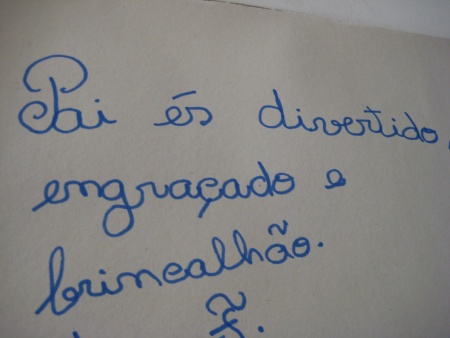 Pai és divertido,
engraçado e
brincalhão.
F.